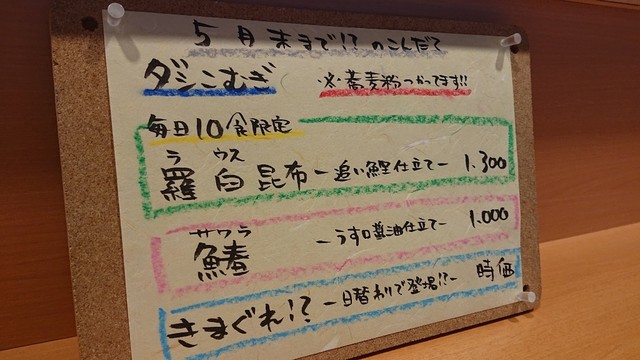 5月末まで!?のこんだて
ダシこむぎ ※蕎麦粉つかってます!!
毎日10食限定
ラ ウス
羅臼昆布 -追い鰹仕立て- 1.300
サワラ
鰆 -うす口醤油仕立て- 1.000
きまぐれ!? -日替わりで登場!?- 時価